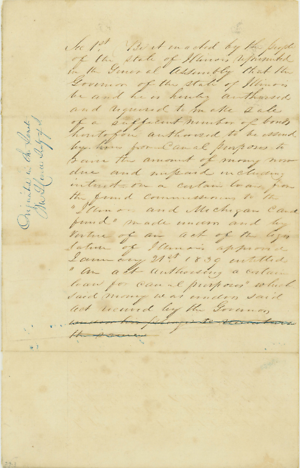 Sec 1st Be it enacted by the people
of the state of Illinois represented
in the General Assembly that the
Governor of the state of Illinois
be and he is hereby authorised
and required to make sale
of a sufficient number of bonds
heretofore authorised to be issued
by him for Canal purposes to
raise the amount of money now
due and unpaid including
interest on a certain loan from
the fund commissioners to the
"Illinois and Michigan Canal
fund" made under and by
virtue of an act of the legis
lature of Illinois approved
January 1839 entitled
"An act authorising a certain
loan for canal purposes" which
said money was under said
act received by the Governor
the same